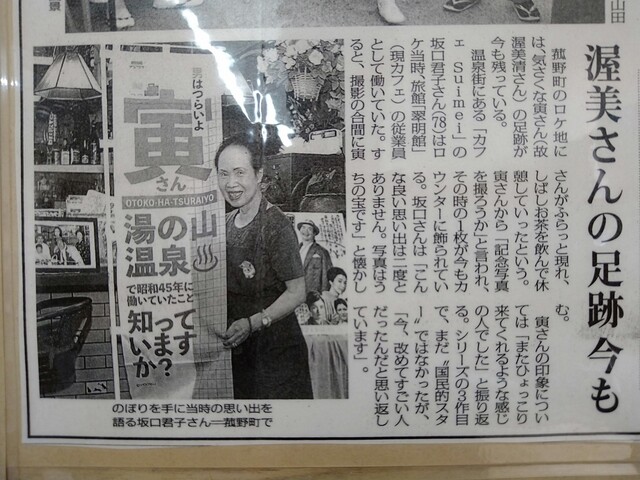 山田
景
渥美さんの足跡今も
菰野町のロケ地に
は、気さくな寅さん（故
渥美清さん）の足跡が
今も残っている。
温泉街にある「カフ
ェ Suimei」の
坂口君子さん(78)はロ
ケ当時、旅館「翠明館」
（現カフェ）の従業員
として働いていた。す
ると、撮影の合間に寅
さんがふらっと現れ、
しばしお茶を飲んで休
憩していったという。
寅さんから「記念写真
を撮ろうか」と言われ、
その時の1枚が今もカ
ウンターに飾られてい
る。坂口さんは「こん
な良い思い出は二度と
ありません。写真はう
ちの宝です」と懐かし
む。
寅さんの印象につい
ては「またひょっこり
来てくれるような感じ
の人でした」と振り返
る。シリーズの3作目
で、まだ“国民的スタ
ー”ではなかったが、
「今、改めてすごい人
だったんだと思い返し
ています」。
男はつらいよ
寅さん
OTOKO-HA-TSURAIYO
湯の山
温泉
で昭和45年に
働いていたこと
知って
いますか?
のぼりを手に当時の思い出を
語る坂口君子さん＝菰野町で